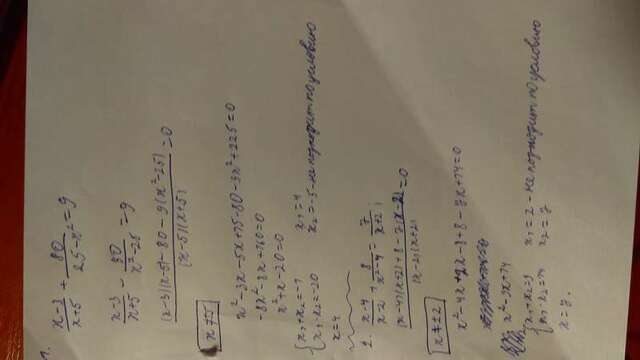 1.
(x-3)/(x+5) + 80/(25-x²) = 9
(x-3)/(x+5) - 80/(x²-25) = 9
((x-3)(x-5)-80-9(x²-25))/((x-5)(x+5)) = 0
x≠±5
x²-3x-5x+15-80-9x²+225=0
-8x²-8x+160=0
x²+x-20=0
{x₁+x₂=-1 x₁=4
{x₁·x₂=-20 x₂=-5-не подходит по условию
x=4
2. (x-4)/(x-2) + 8/(x²-4) = 7/(x+2);
((x-4)(x+2)+8-7(x-2))/((x-2)(x+2)) = 0
x≠±2
x²-4x+2x-8+8-7x+14=0
x²-9x+14
{x₁+x₂=9 x₁=2-не подходит по условию
{x₁·x₂=14 x₂=7
x=7.